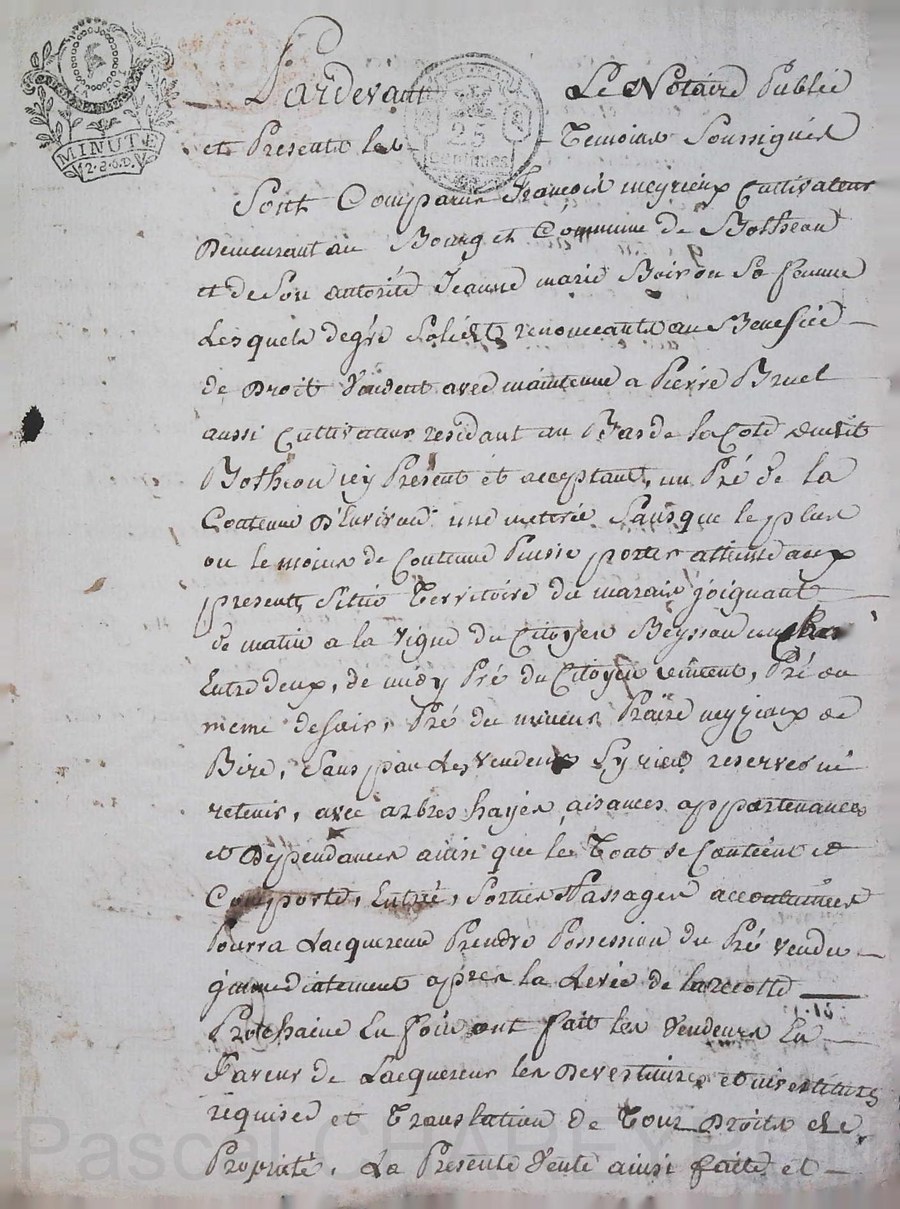 Pardevant Le Notaire Public
et Present les Temoins Soussignés
Sont Comparus François meyrieux Cultivateur
Demeurant au Bourg et Commune de Botheon
et de Son autorité Jeanne marie Boiron Sa femme
Lesquels degré Solid.t renonceants au Benefice
de Droit Vendent avec maintenue a Pierre Bruel
aussi Cultivateur residant au Bas de la Cote dudit
Botheon icy Present et acceptant, un Pré de la
Contenue D'Environ une meterée Sansque le plus
ou le moins de Contenue Puisse porter atteinte aux
presents, Situé Territoire du marais joignant
de matin a la vigne du Citoyen Beyssou un
Entredeux, de midy Pré du Citoyen vincent, Pré du
meme de Soir, Pré du mineur meyrieux de
Bize, Sans par les Vendeurs Sy rien reserver ni
retenir, avec arbres hayes, aisances appartenances
et Dependances ainsi que le Tout se Contient et
Comporte, Entrée, Sorties Passages accoutumés
Pourra Lacquereur Prendre Possession du Pré vendu
immediatement apres la Levée de la recolte
Prochaine En foin ont fait les Vendeurs En
Faveur de Lacquereur les Devestitures et investitures
requises et Translation de Tous Droits de
Propriété. La Presente Vente ainsi faite et
MINUTE
12.S.6.D.
25
Centimes
Pascal CHAREYRON